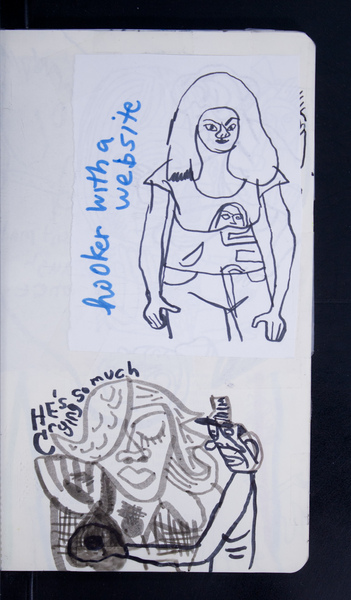 hooker with a
website
HE'S
Crying so much